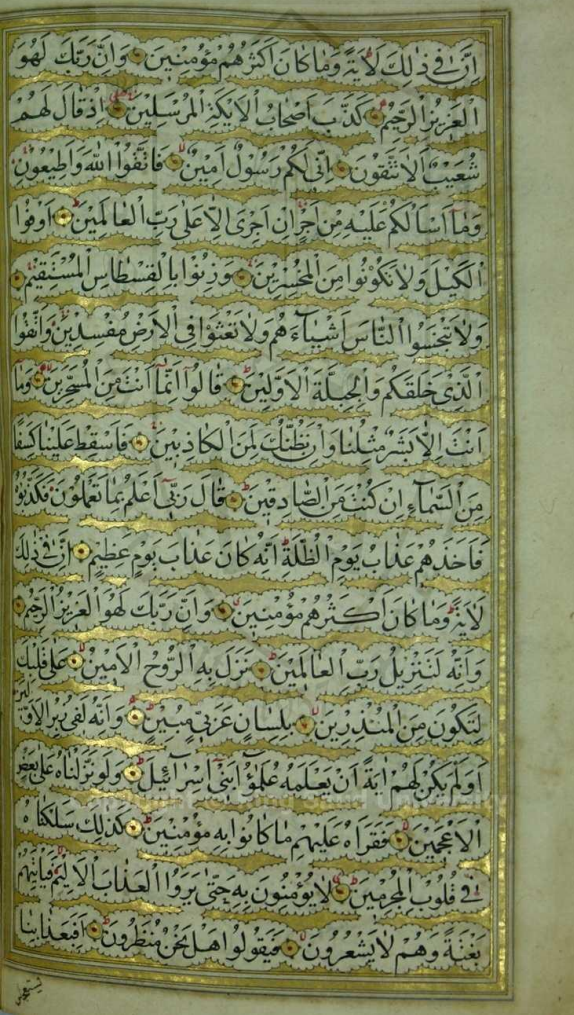 اِنَّ فِي ذٰلِكَ لَاٰيَةً وَمَا كَانَ اَكْثَرُهُمْ مُؤْمِنِينَ وَاِنَّ رَبَّكَ لَهُوَ
الْعَزِيزُ الرَّحِيمُ كَذَّبَ اَصْحَابُ الْاَيْكَةِ الْمُرْسَلِينَ اِذْ قَالَ لَهُمْ
شُعَيْبٌ اَلَا تَتَّقُونَ اِنِّي لَكُمْ رَسُولٌ اَمِينٌ فَاتَّقُوا اللهَ وَاَطِيعُونِ
وَمَا اَسْاَلُكُمْ عَلَيْهِ مِنْ اَجْرٍ اِنْ اَجْرِيَ اِلَّا عَلٰى رَبِّ الْعَالَمِينَ اَوْفُوا
الْكَيْلَ وَلَا تَكُونُوا مِنَ الْمُخْسِرِينَ وَزِنُوا بِالْقِسْطَاسِ الْمُسْتَقِيمِ
وَلَا تَبْخَسُوا النَّاسَ اَشْيَاءَهُمْ وَلَا تَعْثَوْا فِي الْاَرْضِ مُفْسِدِينَ وَاتَّقُوا
الَّذِي خَلَقَكُمْ وَالْجِبِلَّةَ الْاَوَّلِينَ قَالُوا اِنَّمَا اَنْتَ مِنَ الْمُسَحَّرِينَ وَمَا
اَنْتَ اِلَّا بَشَرٌ مِثْلُنَا وَاِنْ نَظُنُّكَ لَمِنَ الْكَاذِبِينَ فَاَسْقِطْ عَلَيْنَا كِسَفًا
مِنَ السَّمَاءِ اِنْ كُنْتَ مِنَ الصَّادِقِينَ قَالَ رَبِّي اَعْلَمُ بِمَا تَعْمَلُونَ فَكَذَّبُوهُ
فَاَخَذَهُمْ عَذَابُ يَوْمِ الظُّلَّةِ اِنَّهُ كَانَ عَذَابَ يَوْمٍ عَظِيمٍ اِنَّ فِي ذٰلِكَ
لَاٰيَةً وَمَا كَانَ اَكْثَرُهُمْ مُؤْمِنِينَ وَاِنَّ رَبَّكَ لَهُوَ الْعَزِيزُ الرَّحِيمُ
وَاِنَّهُ لَتَنْزِيلُ رَبِّ الْعَالَمِينَ نَزَلَ بِهِ الرُّوحُ الْاَمِينُ عَلٰى قَلْبِكَ
لِتَكُونَ مِنَ الْمُنْذِرِينَ بِلِسَانٍ عَرَبِيٍّ مُبِينٍ وَاِنَّهُ لَفِي زُبُرِ الْاَوَّلِينَ
اَوَلَمْ يَكُنْ لَهُمْ اٰيَةً اَنْ يَعْلَمَهُ عُلَمٰؤُا بَنِي اِسْرَائِيلَ وَلَوْ نَزَّلْنَاهُ عَلٰى بَعْضِ
الْاَعْجَمِينَ فَقَرَاَهُ عَلَيْهِمْ مَا كَانُوا بِهِ مُؤْمِنِينَ كَذٰلِكَ سَلَكْنَاهُ
فِي قُلُوبِ الْمُجْرِمِينَ لَا يُؤْمِنُونَ بِهِ حَتّٰى يَرَوُا الْعَذَابَ الْاَلِيمَ فَيَاْتِيَهُمْ
بَغْتَةً وَهُمْ لَا يَشْعُرُونَ فَيَقُولُوا هَلْ نَحْنُ مُنْظَرُونَ اَفَبِعَذَابِنَا
يستعجلون